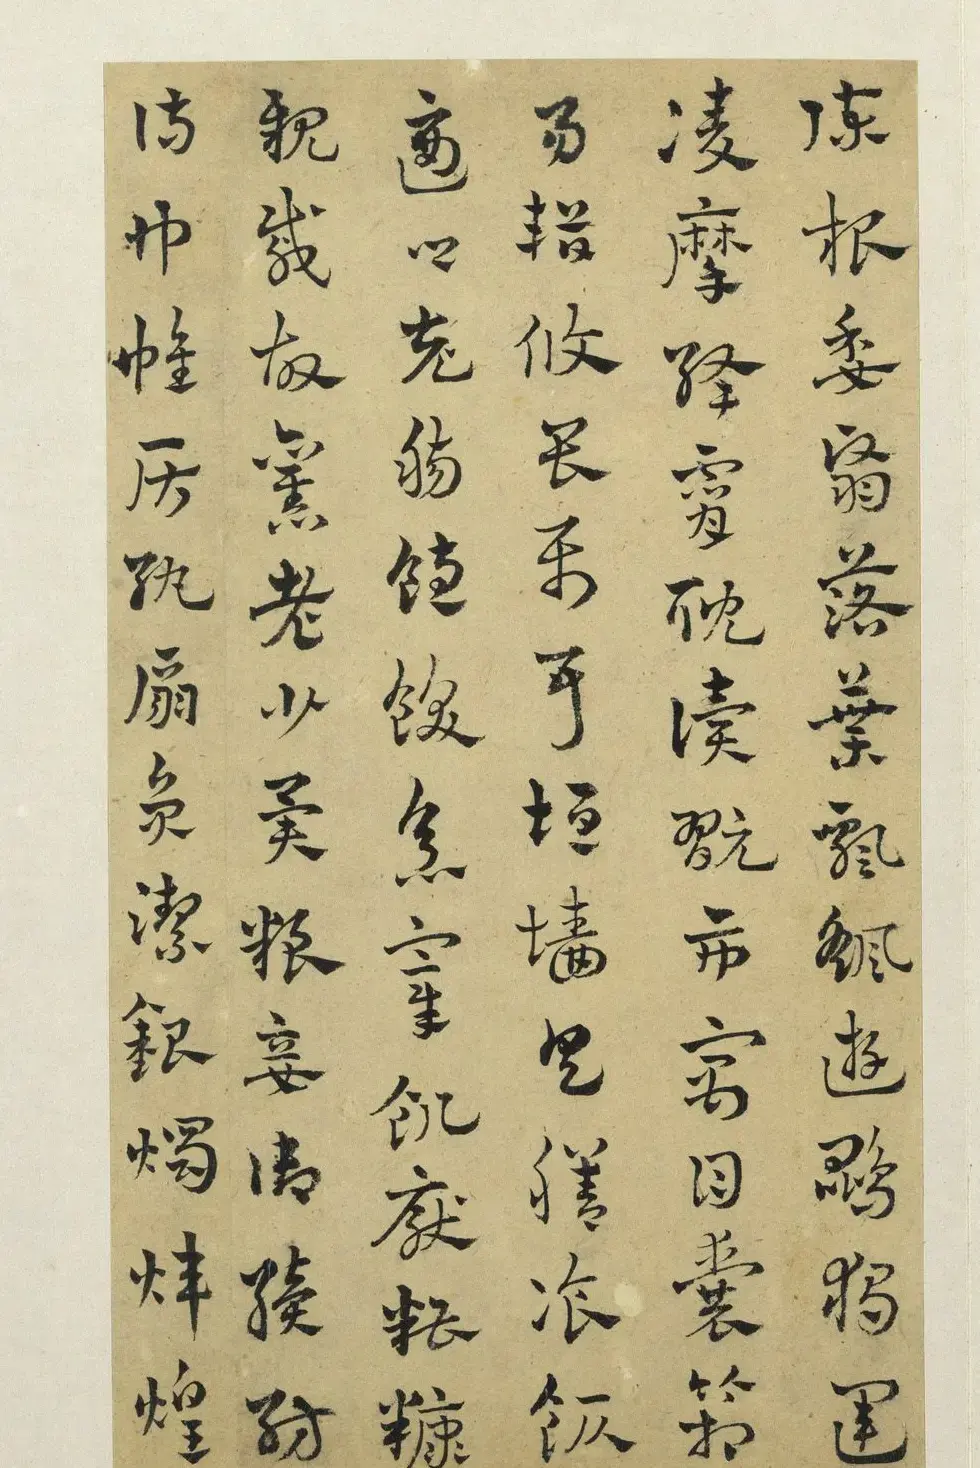 陈根委翳落葉飄飖遊鵾獨運
凌摩絳霄耽讀翫市寓目囊箱
易輶攸畏属耳垣墻具膳飡飯
適口充腸飽飫烹宰飢厭糟糠
親戚故舊老少異粮妾御績紡
侍巾帷房紈扇圓潔銀燭煒煌